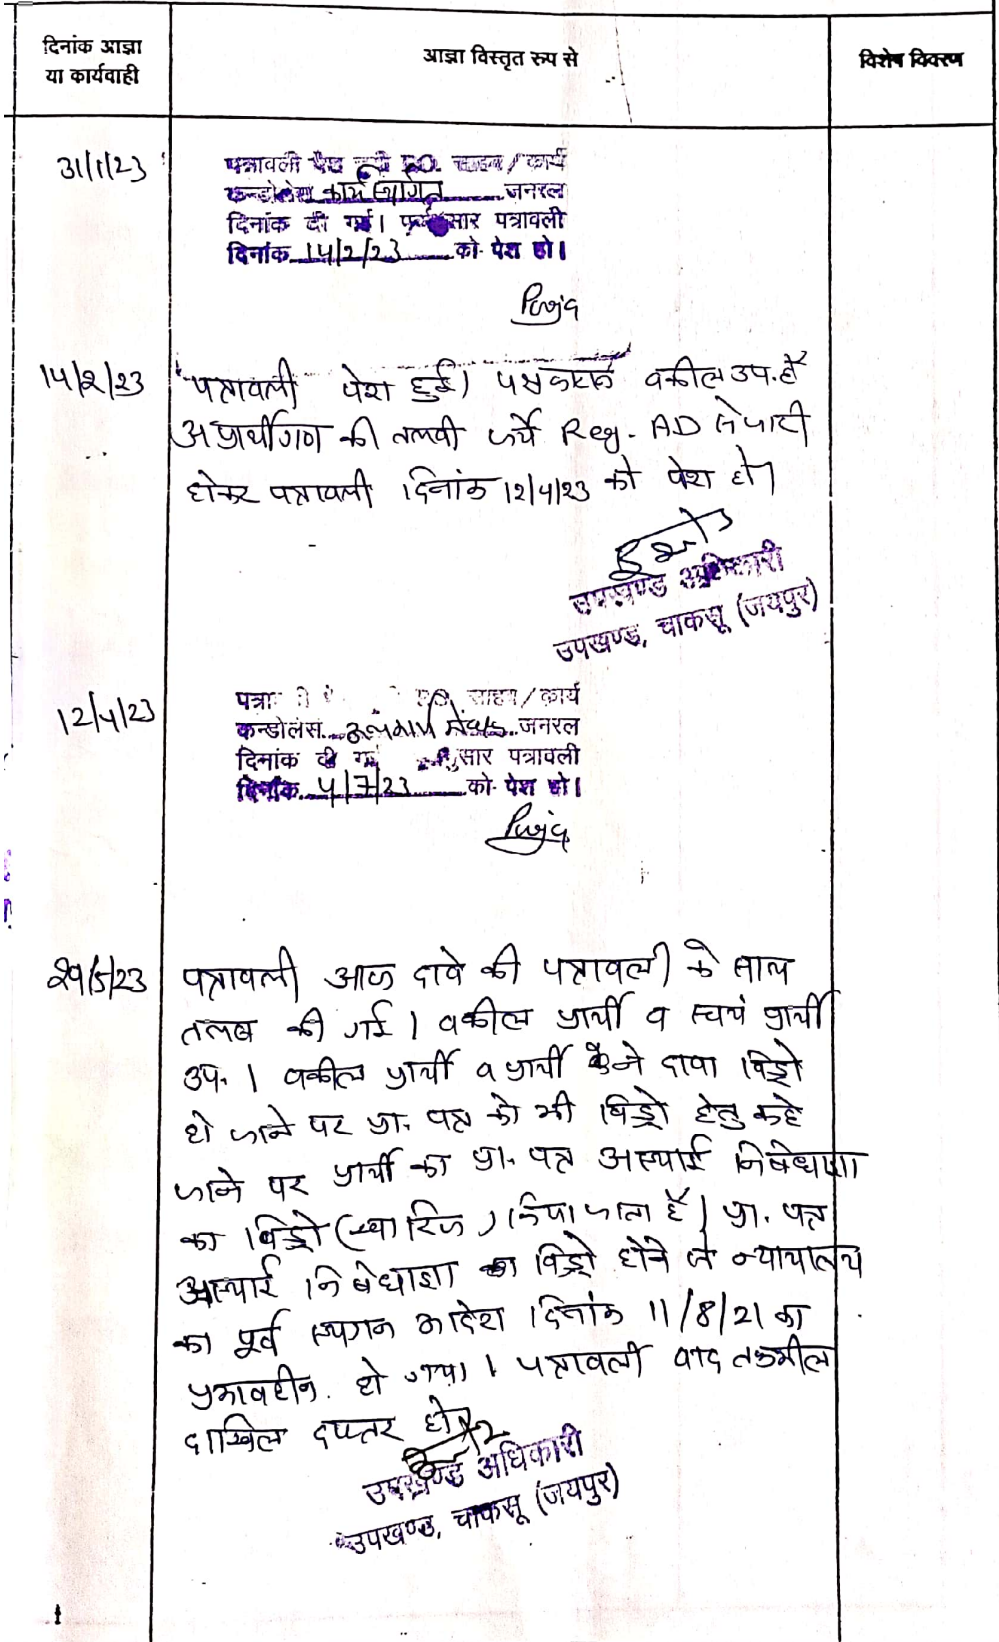 दिनांक आज्ञा
या कार्यवाही
आज्ञा विस्तृत रुप से
विशेष विवरण
31/1/23
पत्रावली पेश साहब / कार्य
कन्डोलेंस कार्य स्थगित जनरल
दिनांक दी गई। सार पत्रावली
दिनांक 14/2/23 को पेश हो।
Puja
14/2/23
पत्रावली पेश हुई। वकील उप. है
अप्रार्थीगण की तलवी जर्ये Reg. AD से जारी
होकर पत्रावली दिनांक 12/4/23 को पेश हो।
उपखण्ड अधिकारी
उपखण्ड, चाकसू (जयपुर)
12/4/23
साहब / कार्य
कन्डोलेंस जनरल
दिनांक दी गई सार पत्रावली
दिनांक 4/7/23 को पेश हो।
Puja
29/5/23
पत्रावली आज दावे की पत्रावली के साथ
तलब की गई। वकील प्रार्थी व स्वयं प्रार्थी
उप. । वकील प्रार्थी व प्रार्थी ने दावा विड्रो
हो जाने पर प्रा. पत्र को भी विड्रो हेतु कहे
जाने पर प्रार्थी का प्रा. पत्र अस्थाई निषेधाज्ञा
का विड्रो (खारिज) किया जाता है। प्रा. पत्र
अस्थाई निषेधाज्ञा का विड्रो होने से न्यायालय
का पूर्व स्थगन आदेश दिनांक 11/8/21 का
प्रभावहीन हो गया। पत्रावली बाद तकमील
दाखिल दफ्तर हो।
उपखण्ड अधिकारी
उपखण्ड, चाकसू (जयपुर)